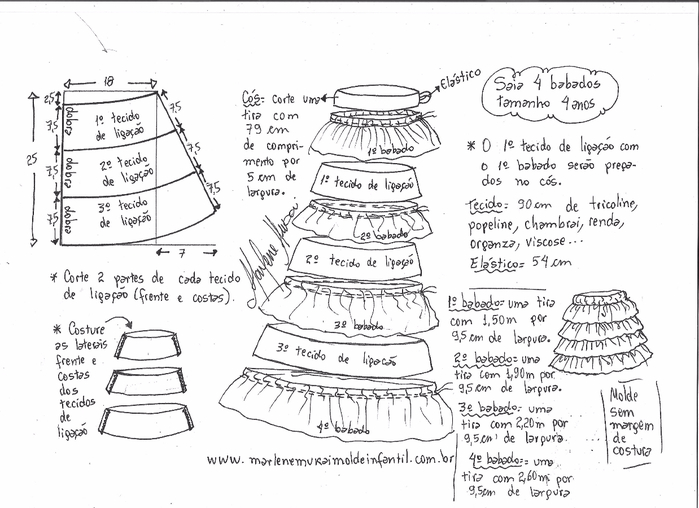 18
2,5
7,5
7,5
7,5
25
dobra
dobra
dobra
1º tecido
de ligação
2º tecido
de ligação
3º tecido
de ligação
7,5
7,5
7,5
7
* Corte 2 partes de cada tecido
de ligação (frente e costas).
* Costure
as laterais
frente e
costas
dos
tecidos
de
ligação
Cós= corte uma
tira com
79 cm
de compri-
mento por
5 cm de
largura.
Elástico
1º babado
1º tecido de ligação
2º babado
2º tecido de ligação
3º babado
3º tecido de ligação
4º babado
Marlene Mukai
www.marlenemukaimoldeinfantil.com.br
Saia 4 babados
tamanho 4 anos
* O 1º tecido de ligação com
o 1º babado serão prega-
dos no cós.
Tecido= 90 cm de tricoline,
popeline, chambrai, renda,
organza, viscose...
Elástico= 54 cm
1º babado= uma tira
com 1,50m por
9,5 cm de largura.
2º babado= uma
tira com 1,90m por
9,5 cm de largura.
3º babado= uma
tira com 2,20m por
9,5 cm de largura.
4º babado= uma
tira com 2,60m por
9,5cm de largura
Molde
sem
margem
de
costura